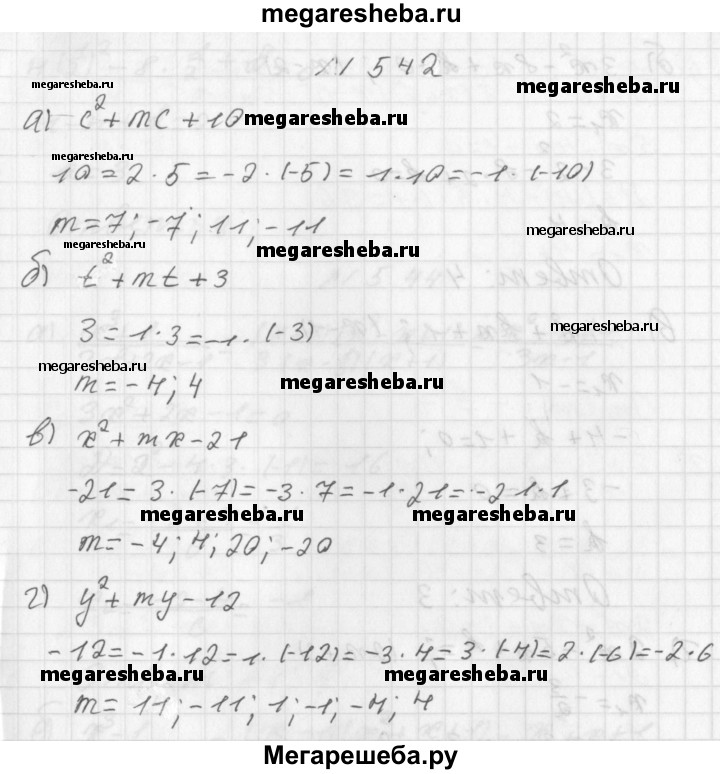 megaresheba.ru
№ 542
megaresheba.ru
а) c² + mc + 10 megaresheba.ru
megaresheba.ru
10 = 2 · 5 = -2 · (-5) = 1 · 10 = -1 · (-10)
m = 7; -7; 11; -11
megaresheba.ru
megaresheba.ru
megaresheba.ru
б) t² + mt + 3
3 = 1 · 3 = -1 · (-3)
megaresheba.ru
megaresheba.ru
m = -4; 4
megaresheba.ru
в) x² + mx - 21
-21 = 3 · (-7) = -3 · 7 = -1 · 21 = -21 · 1
megaresheba.ru megaresheba.ru
m = -4; 4; 20; -20
г) y² + my - 12
-12 = -1 · 12 = 1 · (-12) = -3 · 4 = 3 · (-4) = 2 · (-6) = -2 · 6
megaresheba.ru megaresheba.ru
m = 11; -11; 1; -1; -4; 4
Мегарешеба.ру